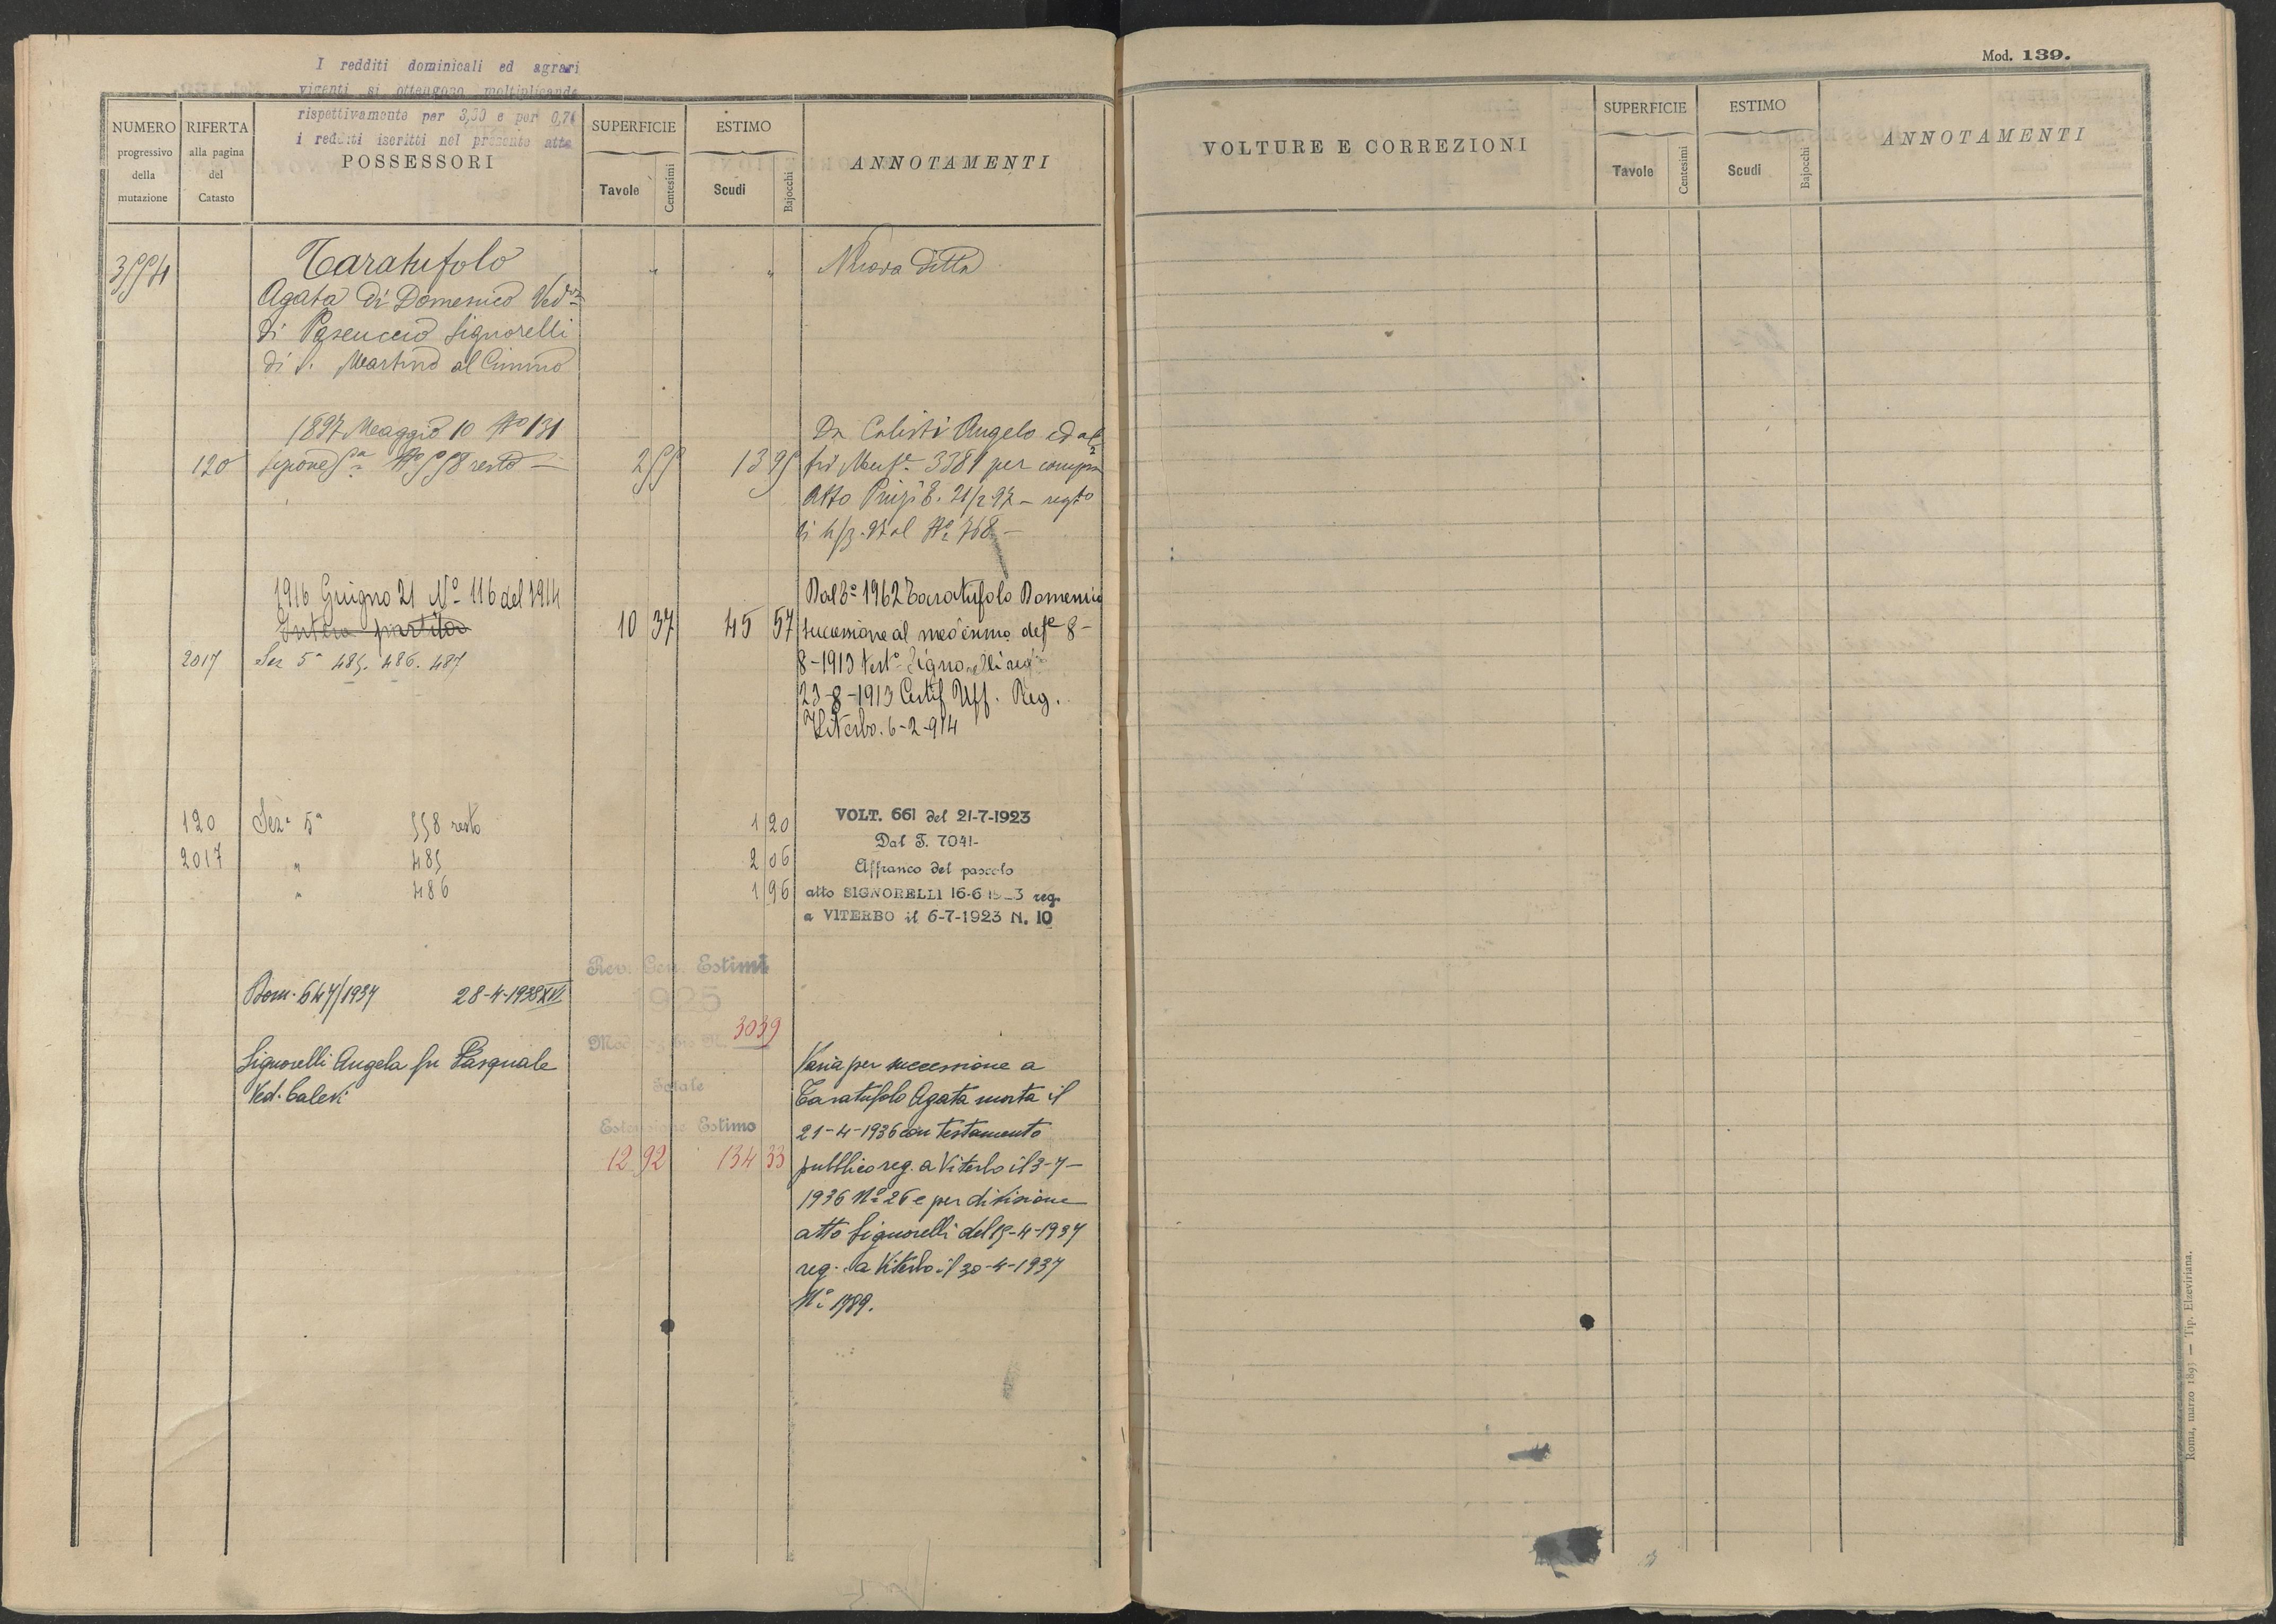 I redditi dominicali ed agrari
vigenti si ottengono moltiplicando
rispettivamente per 3,30 e per 0,74
i redditi iscritti nel presente atto
NUMERO progressivo della mutazione
RIFERTA alla pagina del Catasto
POSSESSORI
SUPERFICIE
Tavole
Centesimi
ESTIMO
Scudi
Bajocchi
ANNOTAMENTI
3554
Taratufolo
" "
Nuova ditta
Agata di Domenico Ved.
di Pascuccio Signorelli
di S. Martino al Cimino
1897 Maggio 10 No 131
Da Calisti Angelo ed al
120 Sezione 5a No 558 resto — 2 55 13 95
tri 3381 per compra
Atto 21/2 97 – regto
li 4/3 Vol No 768 –
1916 Giugno 21 No 116 del 1914
Dal 1962 Taratufolo Domenico
Intera partita
10 37 45 57
successione al medesimo 8–
2017 Sez 5a 485. 486. 487
8–1913 Signorelli reg
23–8–1913 Certif Uff. Reg.
Viterbo. 6–2–914
120 Sez. 5a 558 resto 1 20
2017 " 485 2 06
" 486 1 96
VOLT. 661 del 21-7-1923
Dal T. 7041-
Affranco del pascolo
atto SIGNORELLI 16-6 reg.
a VITERBO il 6-7-1923 N. 10
Rev. Gen. Estimi
1925
3039
Dom. 647/1937 28-4-1938 XVI
Signorelli Angela fu Pasquale
Ved. Calevi
Totale
Estensione Estimo
12 92 134 33
Varia per successione a
Taratufolo Agata morta il
21-4-1936 con testamento
pubblico reg. a Viterbo il 3-7-
1936 No 26 e per divisione
atto Signorelli del 15-4-1937
reg. a Viterbo il 30-4-1937
No 1789.
Mod. 139.
VOLTURE E CORREZIONI
SUPERFICIE
Tavole
Centesimi
ESTIMO
Scudi
Bajocchi
ANNOTAMENTI
Roma, marzo — Tip. Elzeviriana.